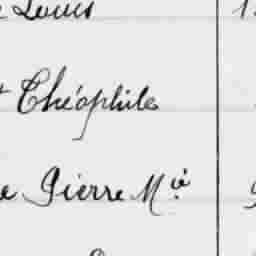 Louis
Théophile
e Pierre M.ie